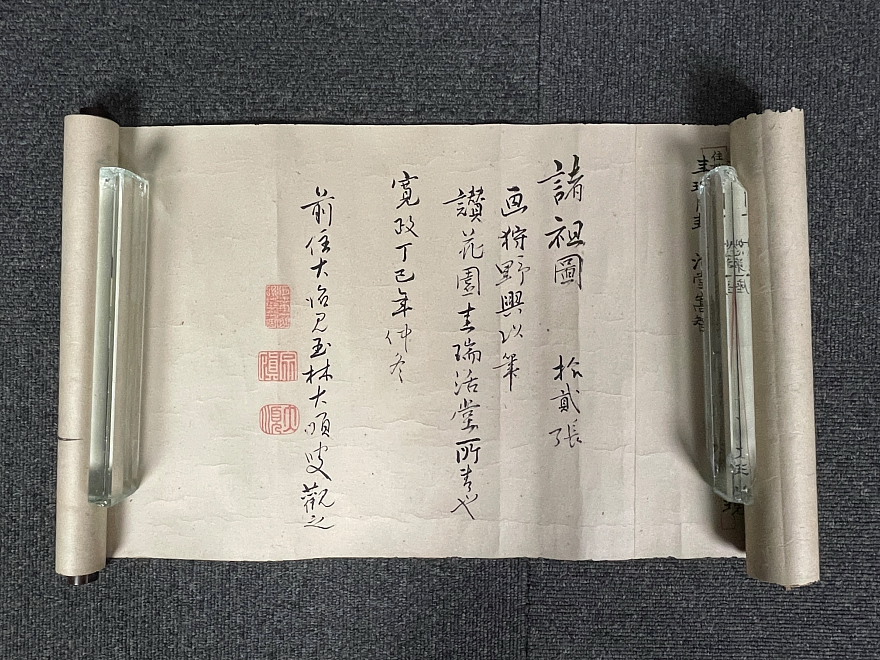 諸祖圖 拾貳張
画狩野興以筆
讃花園圭瑞活堂所書也
寛政丁巳年仲冬
前住大治見玉林大順叟觀之